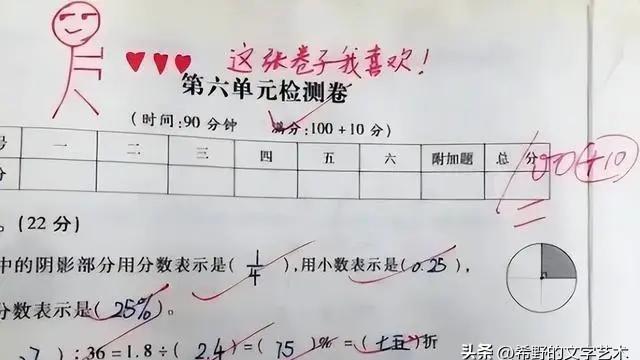 这张卷子我喜欢！
第六单元检测卷
（时间：90 分钟 满分：100 + 10 分）
号 一 二 三 四 五 六 附加题 总 分
分 100 +10
。（22 分）
中的阴影部分用分数表示是( 1/4 ),用小数表示是( 0.25 ),
分数表示是( 25% )。
) : 36 = 1.8 ÷ ( 2.4 ) = ( 75 )% = ( 七五 )折
头条 @希野的文字艺术